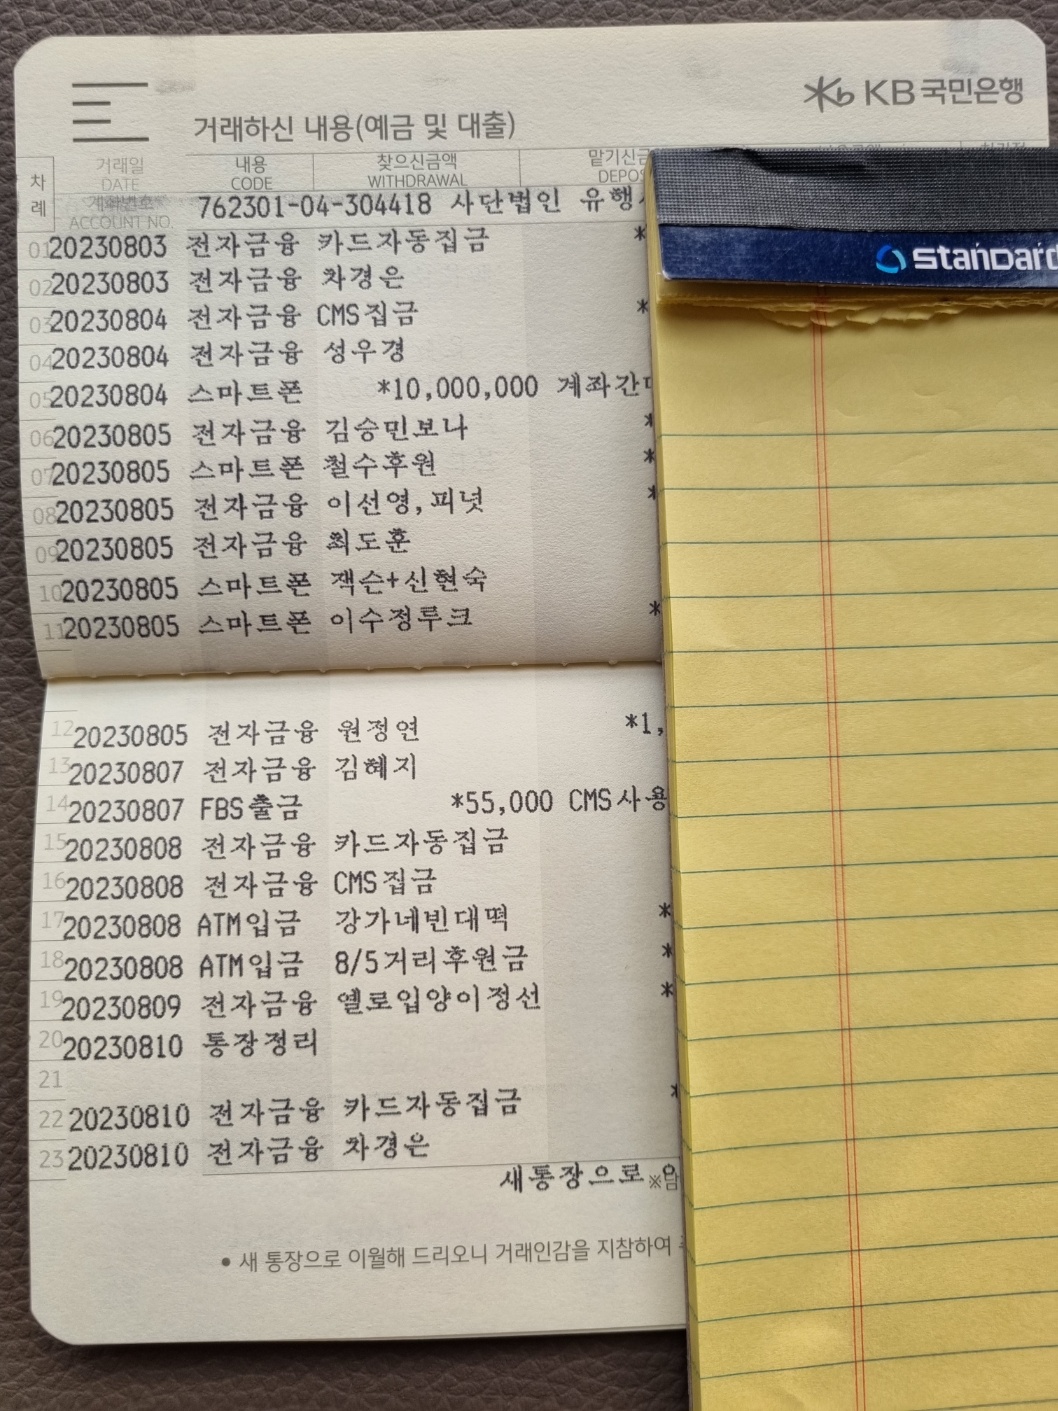 KB국민은행
거래하신 내용(예금 및 대출)
차례 거래일 내용 찾으신금액
DATE CODE WITHDRAWAL
계좌번호 762301-04-304418 사단법인
ACCOUNT NO.
standard
01 20230803 전자금융 카드자동집금 *
02 20230803 전자금융 차경은
03 20230804 전자금융 CMS집금 *
04 20230804 전자금융 성우경
05 20230804 스마트폰 *10,000,000
06 20230805 전자금융 김승민보나 *
07 20230805 스마트폰 철수후원 *
08 20230805 전자금융 이선영,피넛 *
09 20230805 전자금융 최도훈
10 20230805 스마트폰 잭슨+신현숙
11 20230805 스마트폰 이수정루크 *
12 20230805 전자금융 원정연 *1,
13 20230807 전자금융 김혜지
14 20230807 FBS출금 *55,000 CMS사용
15 20230808 전자금융 카드자동집금
16 20230808 전자금융 CMS집금
17 20230808 ATM입금 강가네빈대떡 *
18 20230808 ATM입금 8/5거리후원금 *
19 20230809 전자금융 옐로입양이정선 *
20 20230810 통장정리
21
22 20230810 전자금융 카드자동집금 *
23 20230810 전자금융 차경은
새통장으로
• 새 통장으로 이월해 드리오니 거래인감을 지참하여